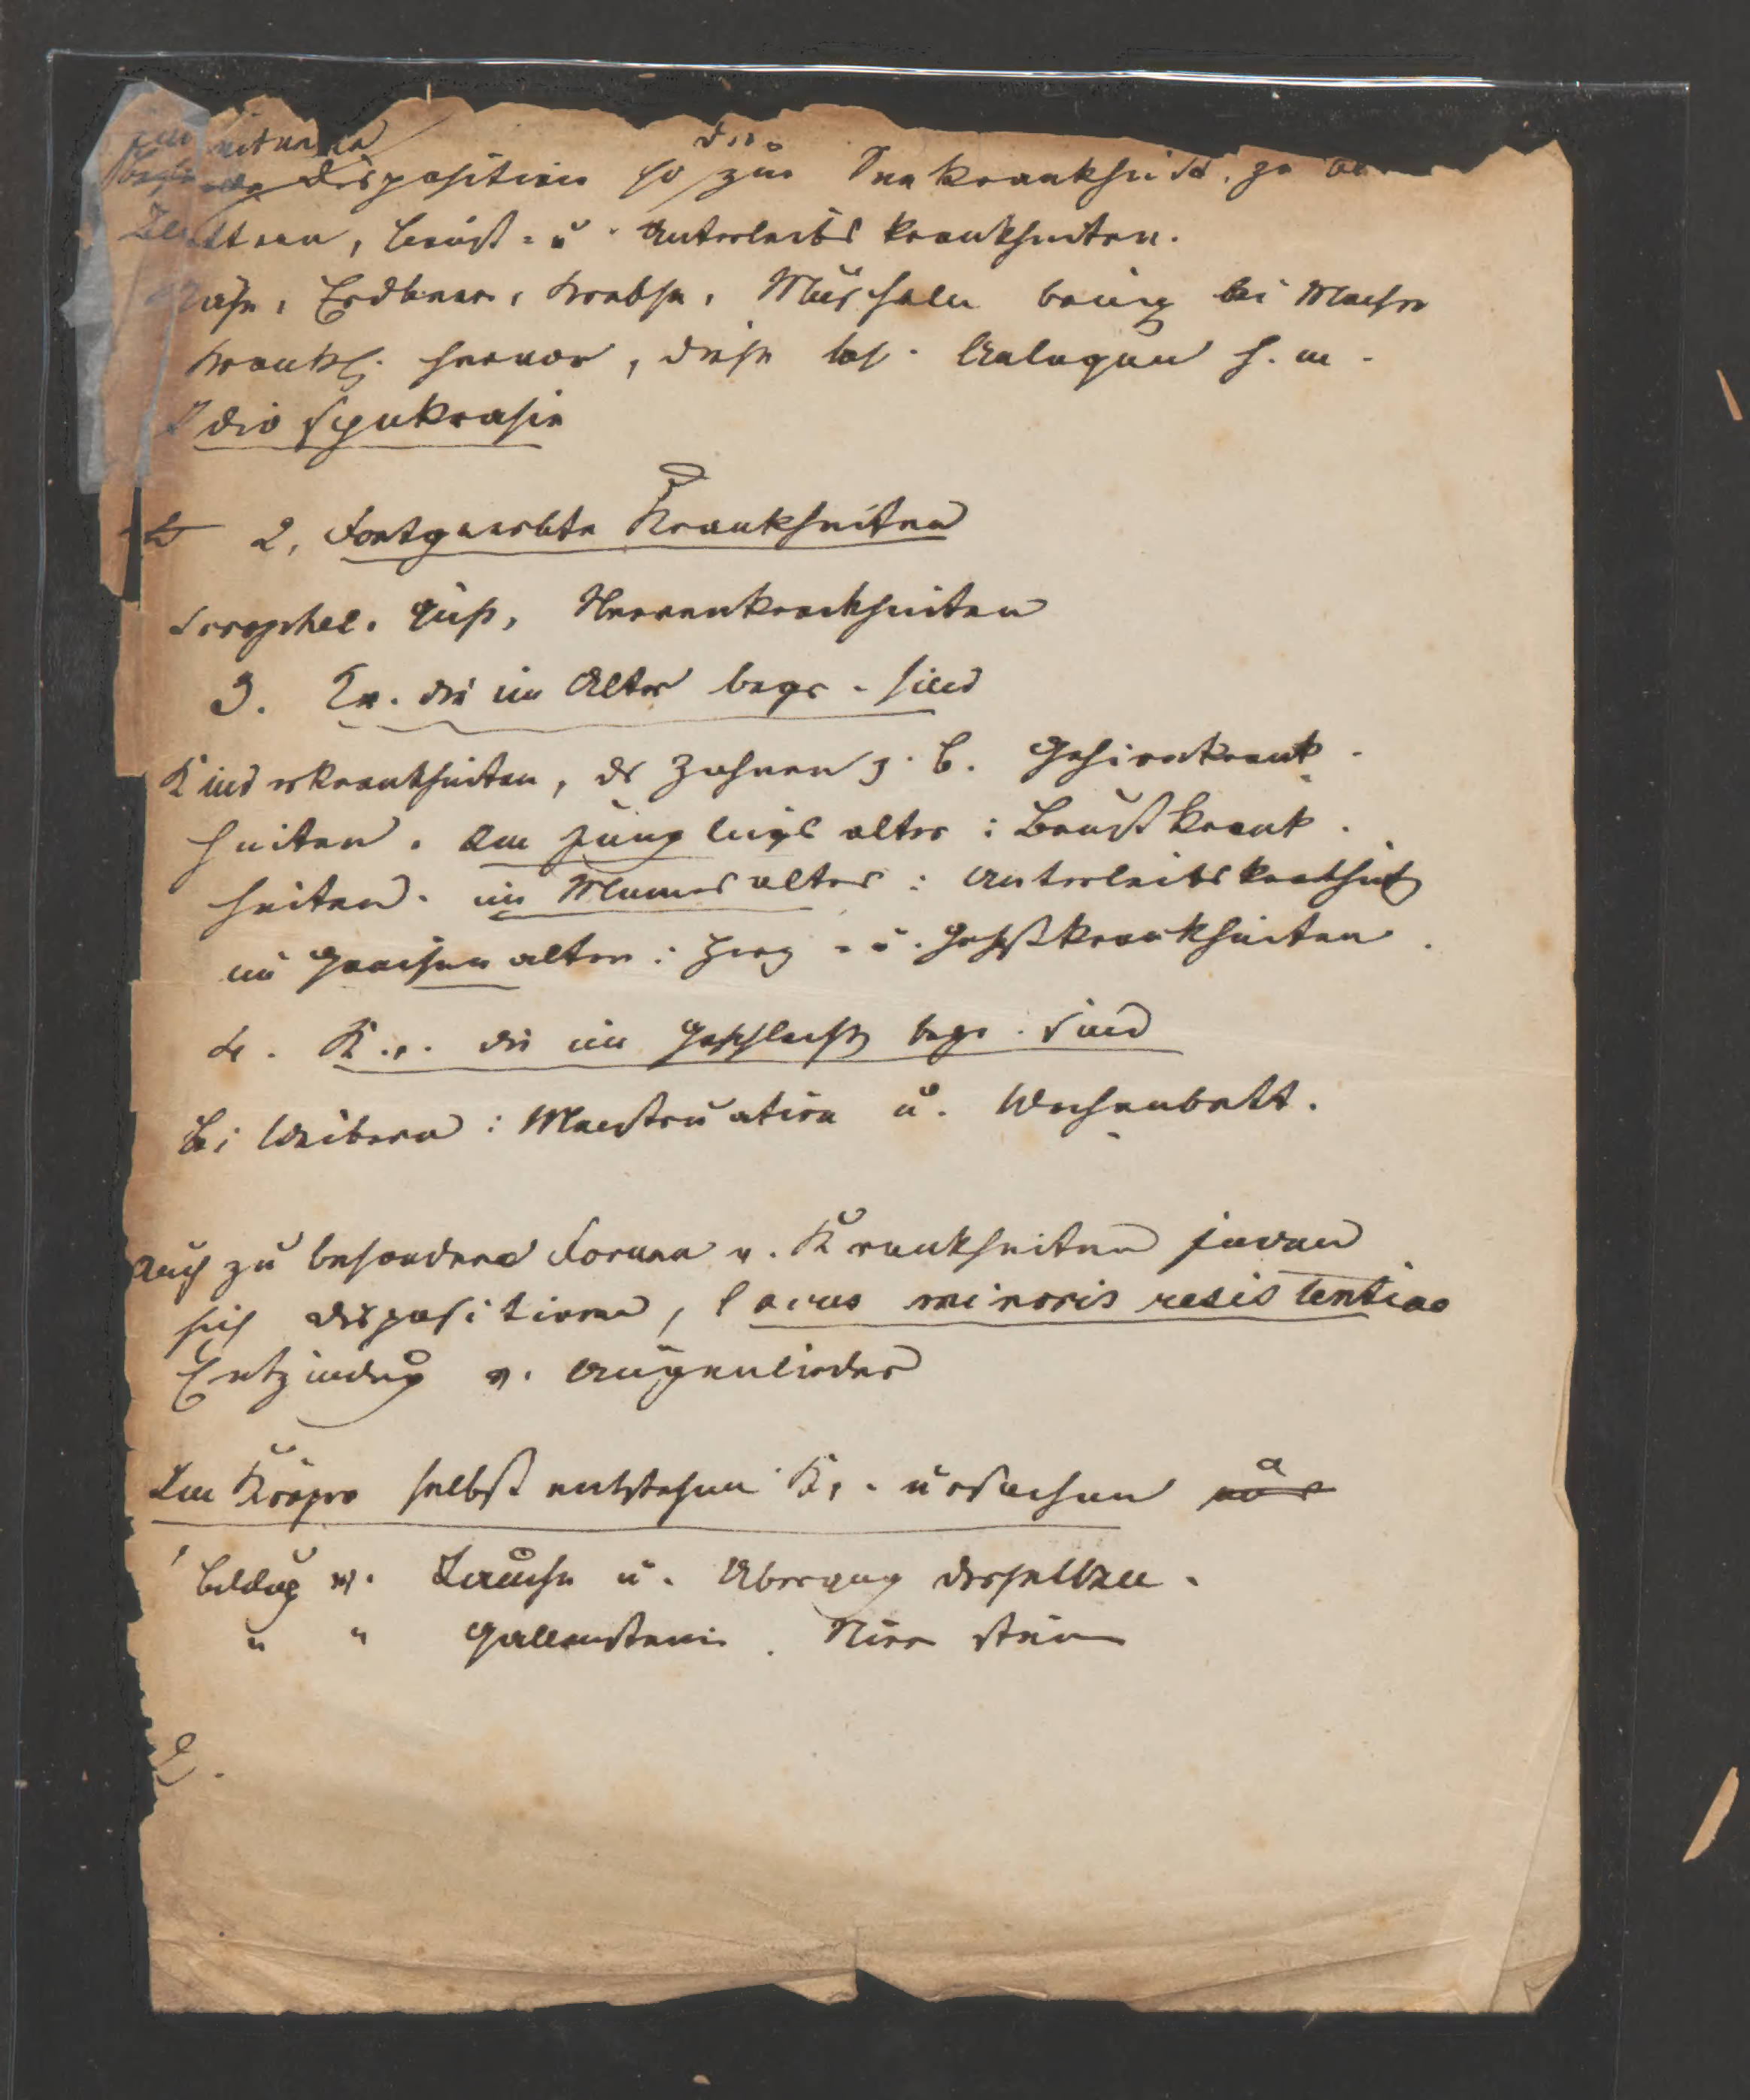 disposition so zur Seekrankheit, zu
Blattern, Brust- u. Unterleibs krankheiten.
Käse, Erdbeer, Krebse, Muscheln bring bei Mach
Krankh. hervor, diese bes. Anlagen h. m.
Idiosynkrasie
2, Fortgeerbte Krankheiten
Scrophel. Gicht, Nervenkrankheiten
3. Kr. die im Alter begr. sind
Kinderkrankheiten, der Zahnen z. B. Gehirnkrank-
heiten. Im Jünglings alter: Brustkrank-
heiten. im Mannes alter: Unterleibskrankheit
im Greisen alter: Herz- u. Gefäßkrankheiten.
4. Kr. die im Geschlecht begr. sind
bei Weibern: Menstruation u. Wochenbett.
Auch zu besondern Formen v. Krankheiten finden
sich dispositionen, locus minoris resistentiae
Entzündug v. Augenlieder
Im Körper selbst entstehen Kr.-ursachen
Bildug v. Jauche u. Übergang derselben.
" " Gallenstein. Nierenstein
2.